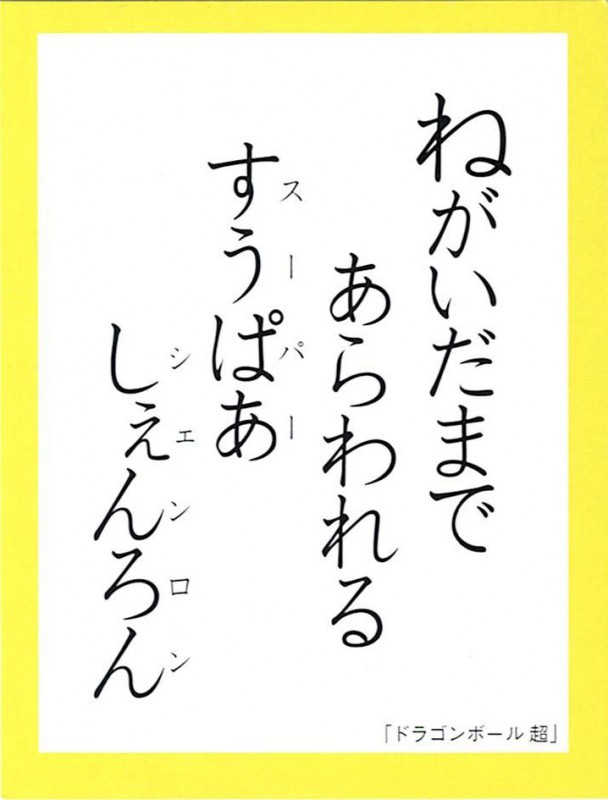 ねがいだまで
あらわれる
すうぱあ
スーパー
しぇんろん
シェンロン
「ドラゴンボール 超」